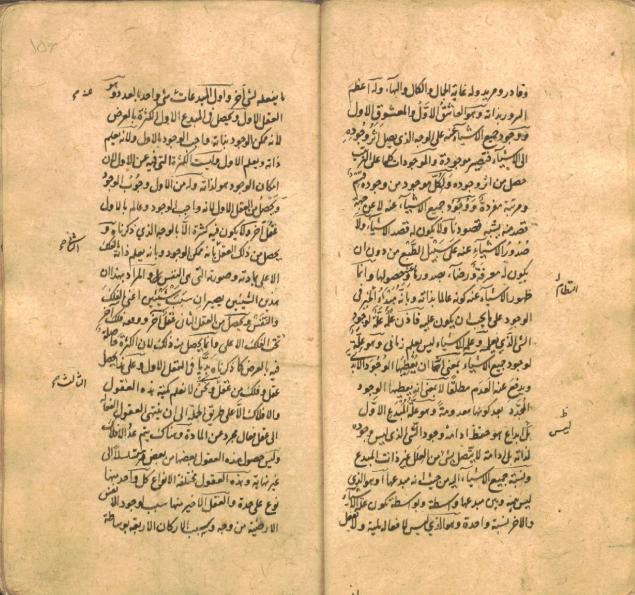 وقادر ومريد وله غاية الجمال والكمال والبهاء وله اعظم
السرور بذاته وهو العاشق الاول والمعشوق الاول
ووجود جميع الاشياء عنه على الوجه الذي يصل اثر وجوده
الى الاشياء فتصير موجودة والموجودات كلها على الترتيب
حصل من اثر وجوده ولكل موجود من وجوده قسم
ومرتبة مفردة ووجود جميع الاشياء عنه لا عن جهة
قصد منه يشبه قصودنا ولا يكون له قصد الاشياء ولا
صدور الاشياء عنه على سبيل الطبع من دون ان
يكون له معرفة ورضاء بصدورها وحصولها وانما
ظهور الاشياء عنه لكونه عالما بذاته وبانه مبدأ الخير في
الوجود على ما يجب ان يكون عليه فاذن علمه علة لوجود
الشئ الذي يعلمه وعلمه الاشياء ليس بعلم زماني وهو علة
لوجود جميع الاشياء بمعنى انه يعطيها الوجود الابدي
ويدفع عنها العدم مطلقا لا بمعنى انه يعطيها الوجود
المجرد بعد كونها معدومة وهو علة المبدع الاول
بل الابداع هو حفظ ادامة وجود الشئ الذي ليس وجوده
لذاته على ادامة لا يتصل بشئ من العلل غير ذات المبدع
ونسبة جميع الاشياء اليه من حيث انه مبدعها او هو الذي
ليس بينه وبين مبدعها واسطة وبوساطته تكون علة الاشياء
والاخر نسبة واحدة وهو الذي ليس لافعاله لمية ولا يفعل
النظام
ليس
ما يفعله لشئ اخر واول المبدعات شئ واحد بالعدد وهو
العقل الاول ويحصل في المبدع الاول الكثرة بالعرض
لانه ممكن الوجود بذاته واجب الوجود بالاول ولانه يعلم
ذاته ويعلم الاول وليست الكثرة التي فيه من الاول لان
امكان الوجود هو لذاته وله من الاول وجوب الوجود
ويحصل من العقل الاول بانه واجب الوجود وعالم بالاول
عقل اخر ولا يكون فيه كثرة الا بالوجه الذي ذكرناه و
يحصل من ذلك العقل بانه ممكن الوجود وبانه يعلم ذاته الفلك
الاعلى بمادته وصورته التي هي النفس والمراد بهذا ان
هذين الشيئين يصيران سبب شيئين اعني الفلك
والنفس ويحصل من العقل الثاني عقل آخر وفلك آخر
تحت الفلك الاعلى وانما يحصل منه ذلك لان الكثرة حاصلة
فيه بالعرض كما ذكرناه بديا في العقل الاول وعلى هذا يحصل
عقل وفلك من عقل ونحن لا نعلم كمية هذه العقول
والافلاك الا على طريق الجملة الى ان ينتهي العقول الفعالة
الى عقل فعال مجرد من المادة وهناك يتم عدد الافلاك
وليس حصول هذه العقول بعضها من بعض متسلسلا الى
غير نهاية وهذه العقول مختلفة الانواع كل واحد منها
نوع على حدة والعقل الاخير منها سبب وجود الانفس
الارضية من وجه وسبب الاركان الاربعة بوساطة
عنه
الثالثة